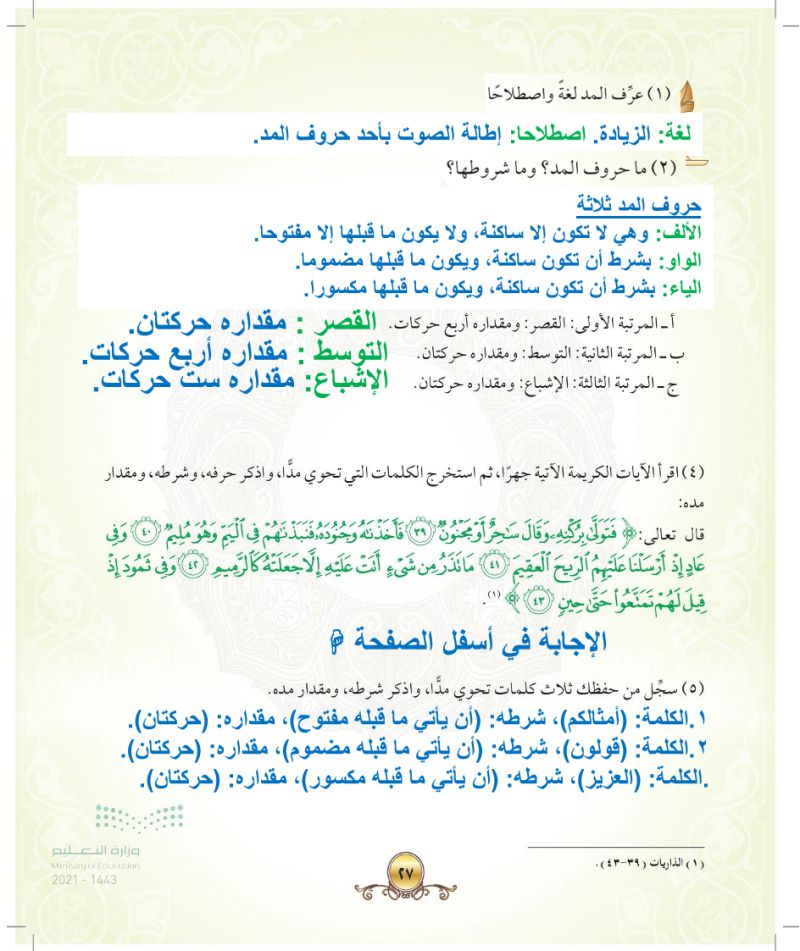 (١) عرِّف المد لغةً واصطلاحًا
لغة: الزيادة. اصطلاحا: إطالة الصوت بأحد حروف المد.
(٢) ما حروف المد؟ وما شروطها؟
حروف المد ثلاثة
الألف: وهي لا تكون إلا ساكنة، ولا يكون ما قبلها إلا مفتوحا.
الواو: بشرط أن تكون ساكنة، ويكون ما قبلها مضموما.
الياء: بشرط أن تكون ساكنة، ويكون ما قبلها مكسورا.
أ ـ المرتبة الأولى: القصر: ومقداره أربع حركات. القصر : مقداره حركتان.
ب ـ المرتبة الثانية: التوسط: ومقداره حركتان. التوسط : مقداره أربع حركات.
ج ـ المرتبة الثالثة: الإشباع: ومقداره حركتان. الإشباع: مقداره ست حركات.
(٤) اقرأ الآيات الكريمة الآتية جهرًا، ثم استخرج الكلمات التي تحوي مدًّا، واذكر حرفه، وشرطه، ومقدار
مده:
قال تعالى: ﴿ فَتَوَلَّىٰ بِرُكْنِهِۦ وَقَالَ سَٰحِرٌ أَوْ مَجْنُونٌ ٣٩ فَأَخَذْنَٰهُ وَجُنُودَهُۥ فَنَبَذْنَٰهُمْ فِي ٱلْيَمِّ وَهُوَ مُلِيمٌ ٤٠ وَفِي
عَادٍ إِذْ أَرْسَلْنَا عَلَيْهِمُ ٱلرِّيحَ ٱلْعَقِيمَ ٤١ مَا تَذَرُ مِن شَيْءٍ أَتَتْ عَلَيْهِ إِلَّا جَعَلَتْهُ كَٱلرَّمِيمِ ٤٢ وَفِي ثَمُودَ إِذْ
قِيلَ لَهُمْ تَمَتَّعُوا۟ حَتَّىٰ حِينٍ ٤٣ ﴾ (١).
الإجابة في أسفل الصفحة
(٥) سجِّل من حفظك ثلاث كلمات تحوي مدًّا، واذكر شرطه، ومقدار مده.
١.الكلمة: (أمثالكم)، شرطه: (أن يأتي ما قبله مفتوح)، مقداره: (حركتان).
٢.الكلمة: (قولون)، شرطه: (أن يأتي ما قبله مضموم)، مقداره: (حركتان).
.الكلمة: (العزيز)، شرطه: (أن يأتي ما قبله مكسور)، مقداره: (حركتان).
(١) الذاريات (٣٩-٤٣).
وزارة التعليم
Ministry of Education
2021 - 1443
٢٧